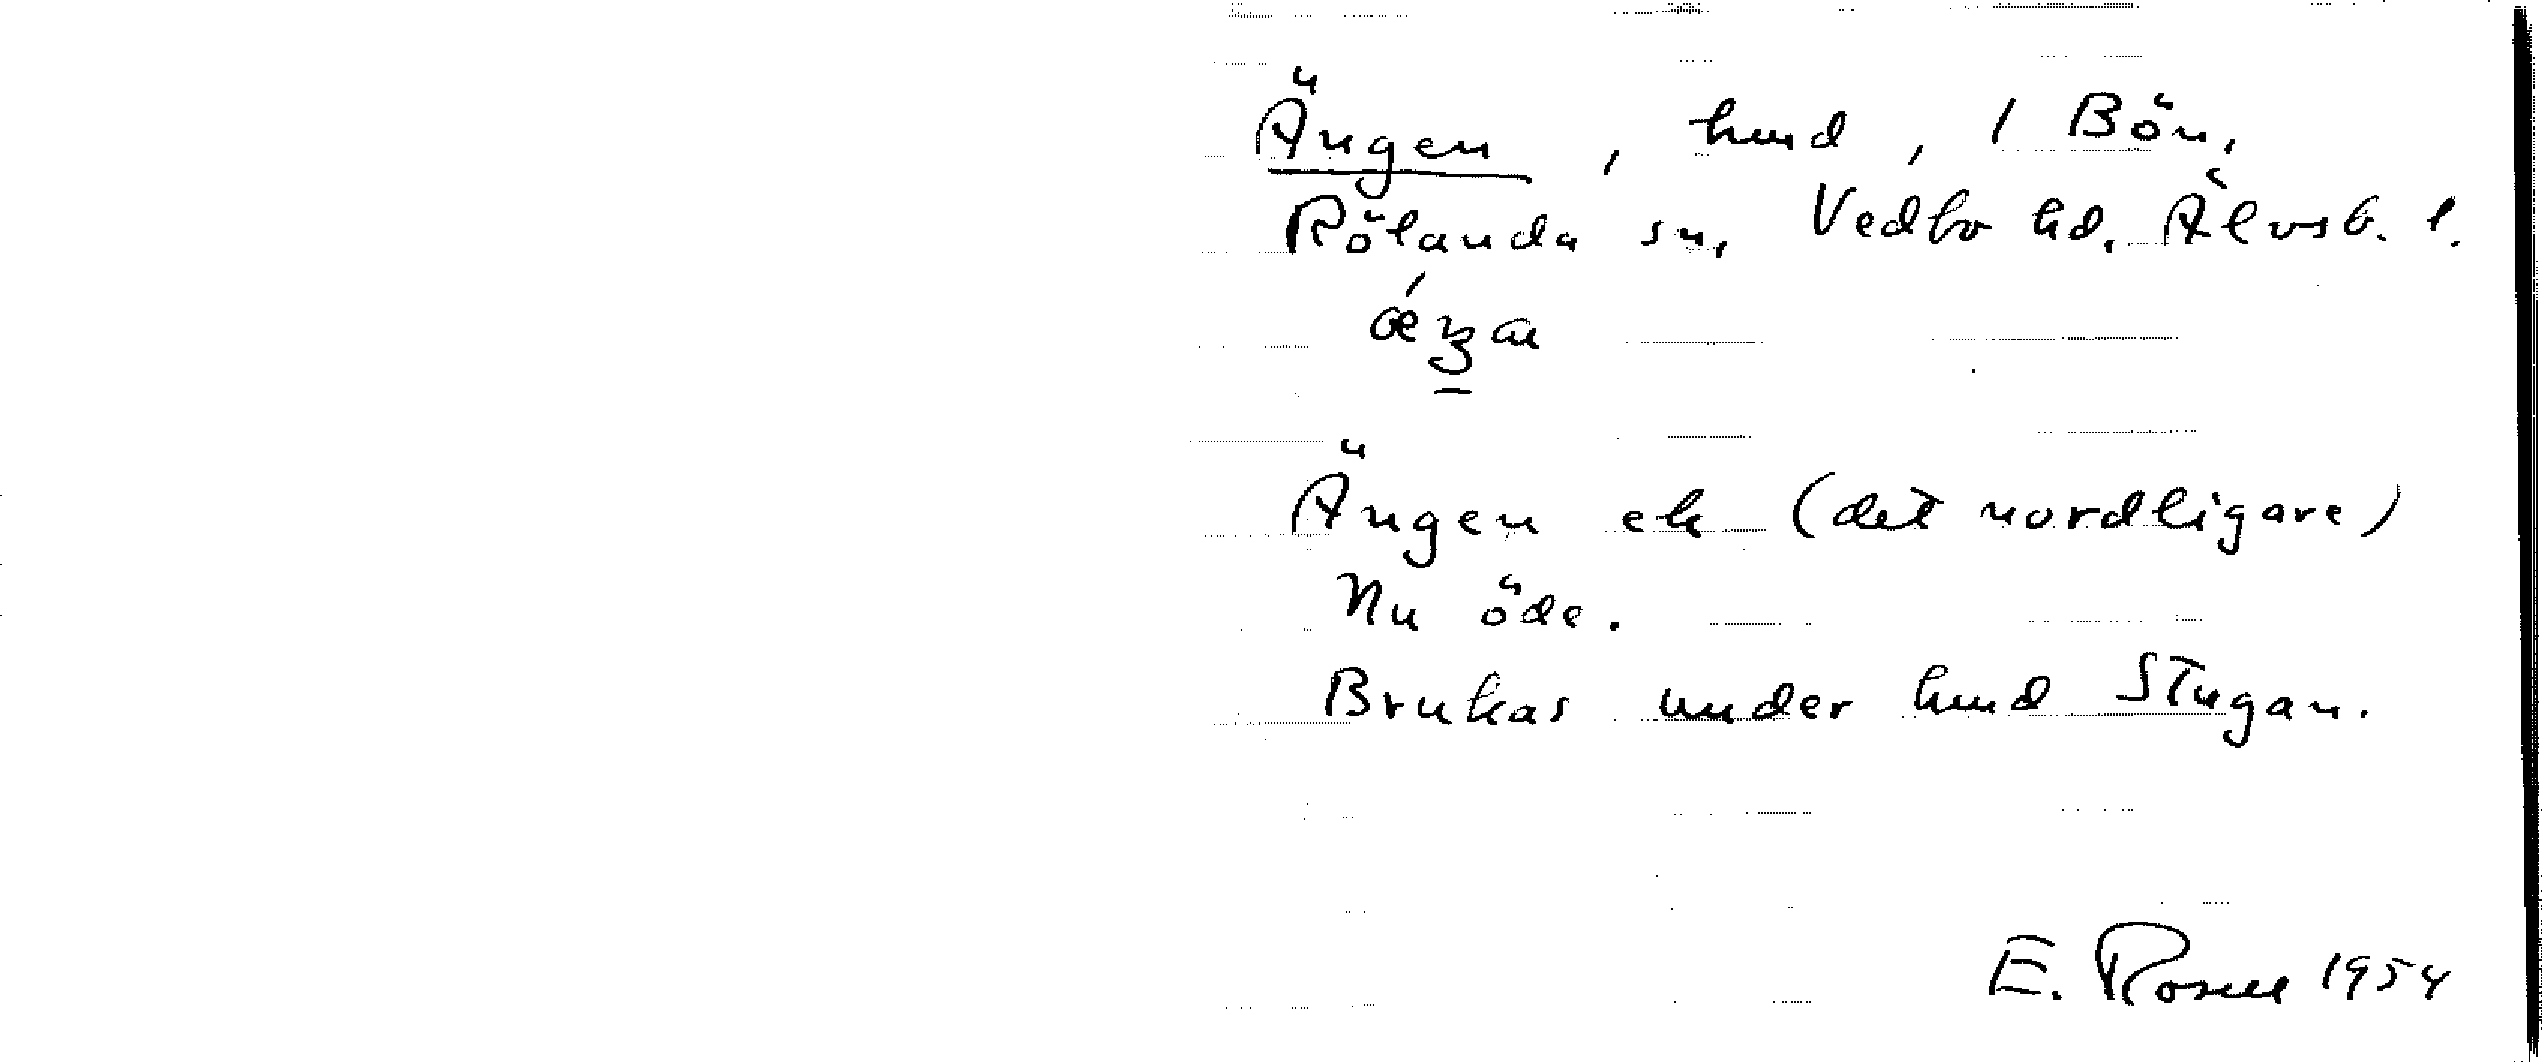 Ängen, hmd, 1 Bön,
Rölanda sn, Vedbo hd. Älvsb. l.
Ängen ek (det nordligare)
Nu öde.
Brukas under hmd Stugan.
E. Rosell 1954